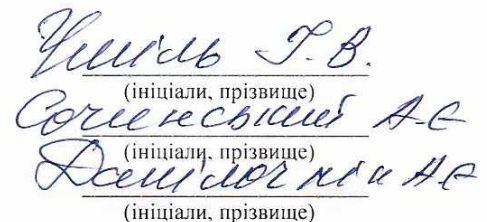 Уміль Г. В.
(ініціали, прізвище)
Сочинський А Є
(ініціали, прізвище)
Данілочкін А Є
(ініціали, прізвище)